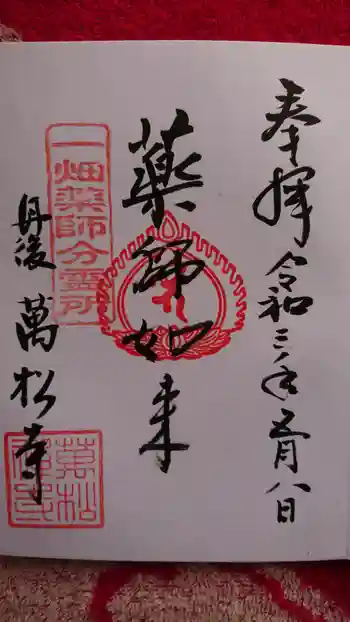 奉拝
令和三年五月八日
薬師如来
一畑薬師分霊所
丹後 萬松寺
萬松